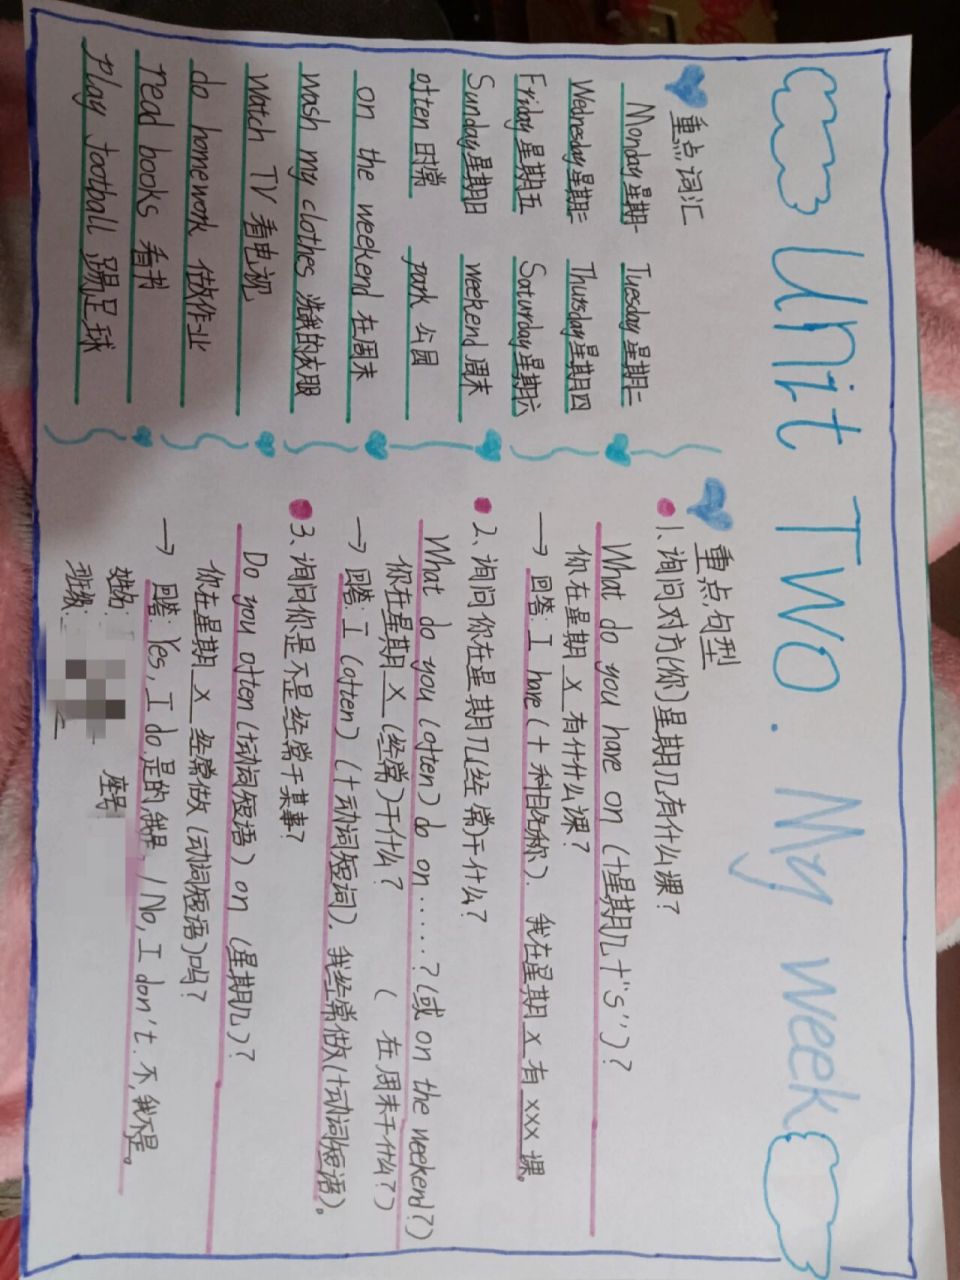 Unit Two. My week
重点词汇
Monday 星期一 Tuesday 星期二
Wednesday 星期三 Thursday 星期四
Friday 星期五 Saturday 星期六
Sunday 星期日 weekend 周末
often 时常 park 公园
on the weekend 在周末
wash my clothes 洗我的衣服
watch TV 看电视
do homework 做作业
read books 看书
play football 踢足球
重点句型
1、询问对方(你)星期几有什么课?
What do you have on (+星期几+"s")?
你在星期 x 有什什么课?
→ 回答: I have (+科目名称). 我在星期 x 有 xxx 课。
2、询问你在星期几(经常)干什么?
What do you (often) do on ……? (或 on the weekend?)
你在星期 x (经常)干什么? ( 在周末干什么?)
→ 回答: I (often) (+动词短词). 我经常做(+动词短语)。
3、询问你是不是经常干某事?
Do you often (动词短语) on (星期几)?
你在星期 x 经常做 (动词短语)吗?
→ 回答: Yes, I do. 是的,我是. / No, I don't. 不,我不是。
姓名: 座号
班级: